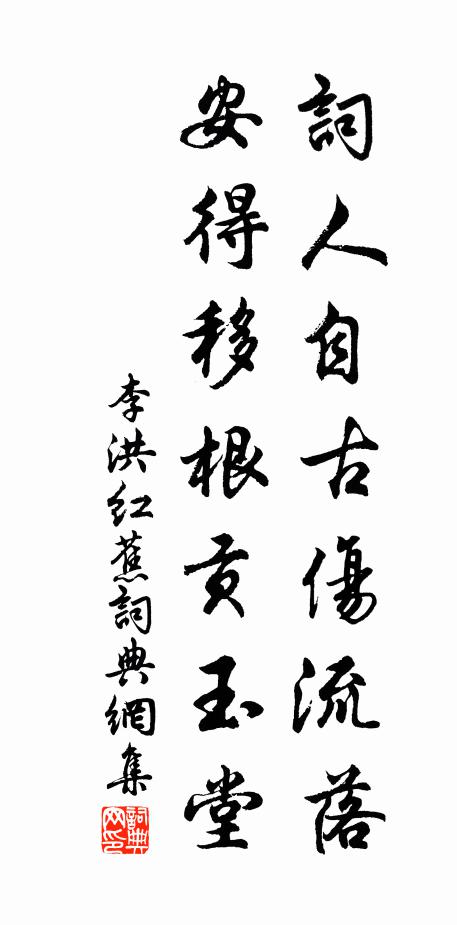 詞人自古傷流落
安得移根貢玉堂
李洪紅蕉詞典網集
詞典网印